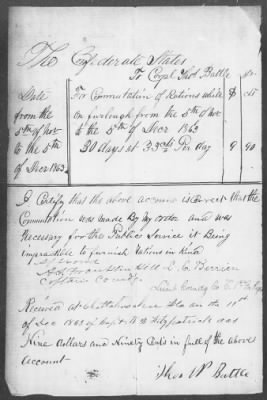 The Confederate States
To Corpl Thos Battle Dr
Date For Commutation of Rations while $ cts
from the on furlough from the 5th of Nov
5th of Nov to the 5th of Decr 1863
to the 5th 30 days at 33 cts Per day 9 90
of Decr 1863
I Certify that the above account is correct that the
Commutation was made by my order and was
Necessary for the Public Service it Being
impracticable to furnish Rations in Kind
At Franklin
County L. C. Berrien
Lieut Comdg Co
Received at Chattahoochee Fla on the 11th
of Dec 1863 of Capt Fitzpatrick
Nine dollars and Ninety Cents in full of the above
account
Thos W Battle